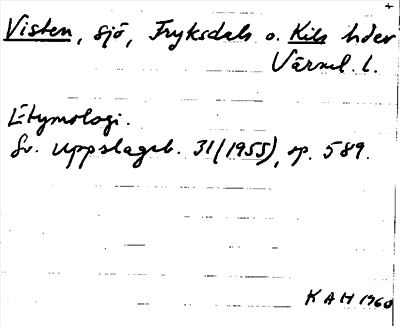 Visten, sjö, Fryksdals o. Kils hder
Värml. l.
Etymologi.
Sv. uppslagsb. 31 (1955), sp. 589.
KAH 1960